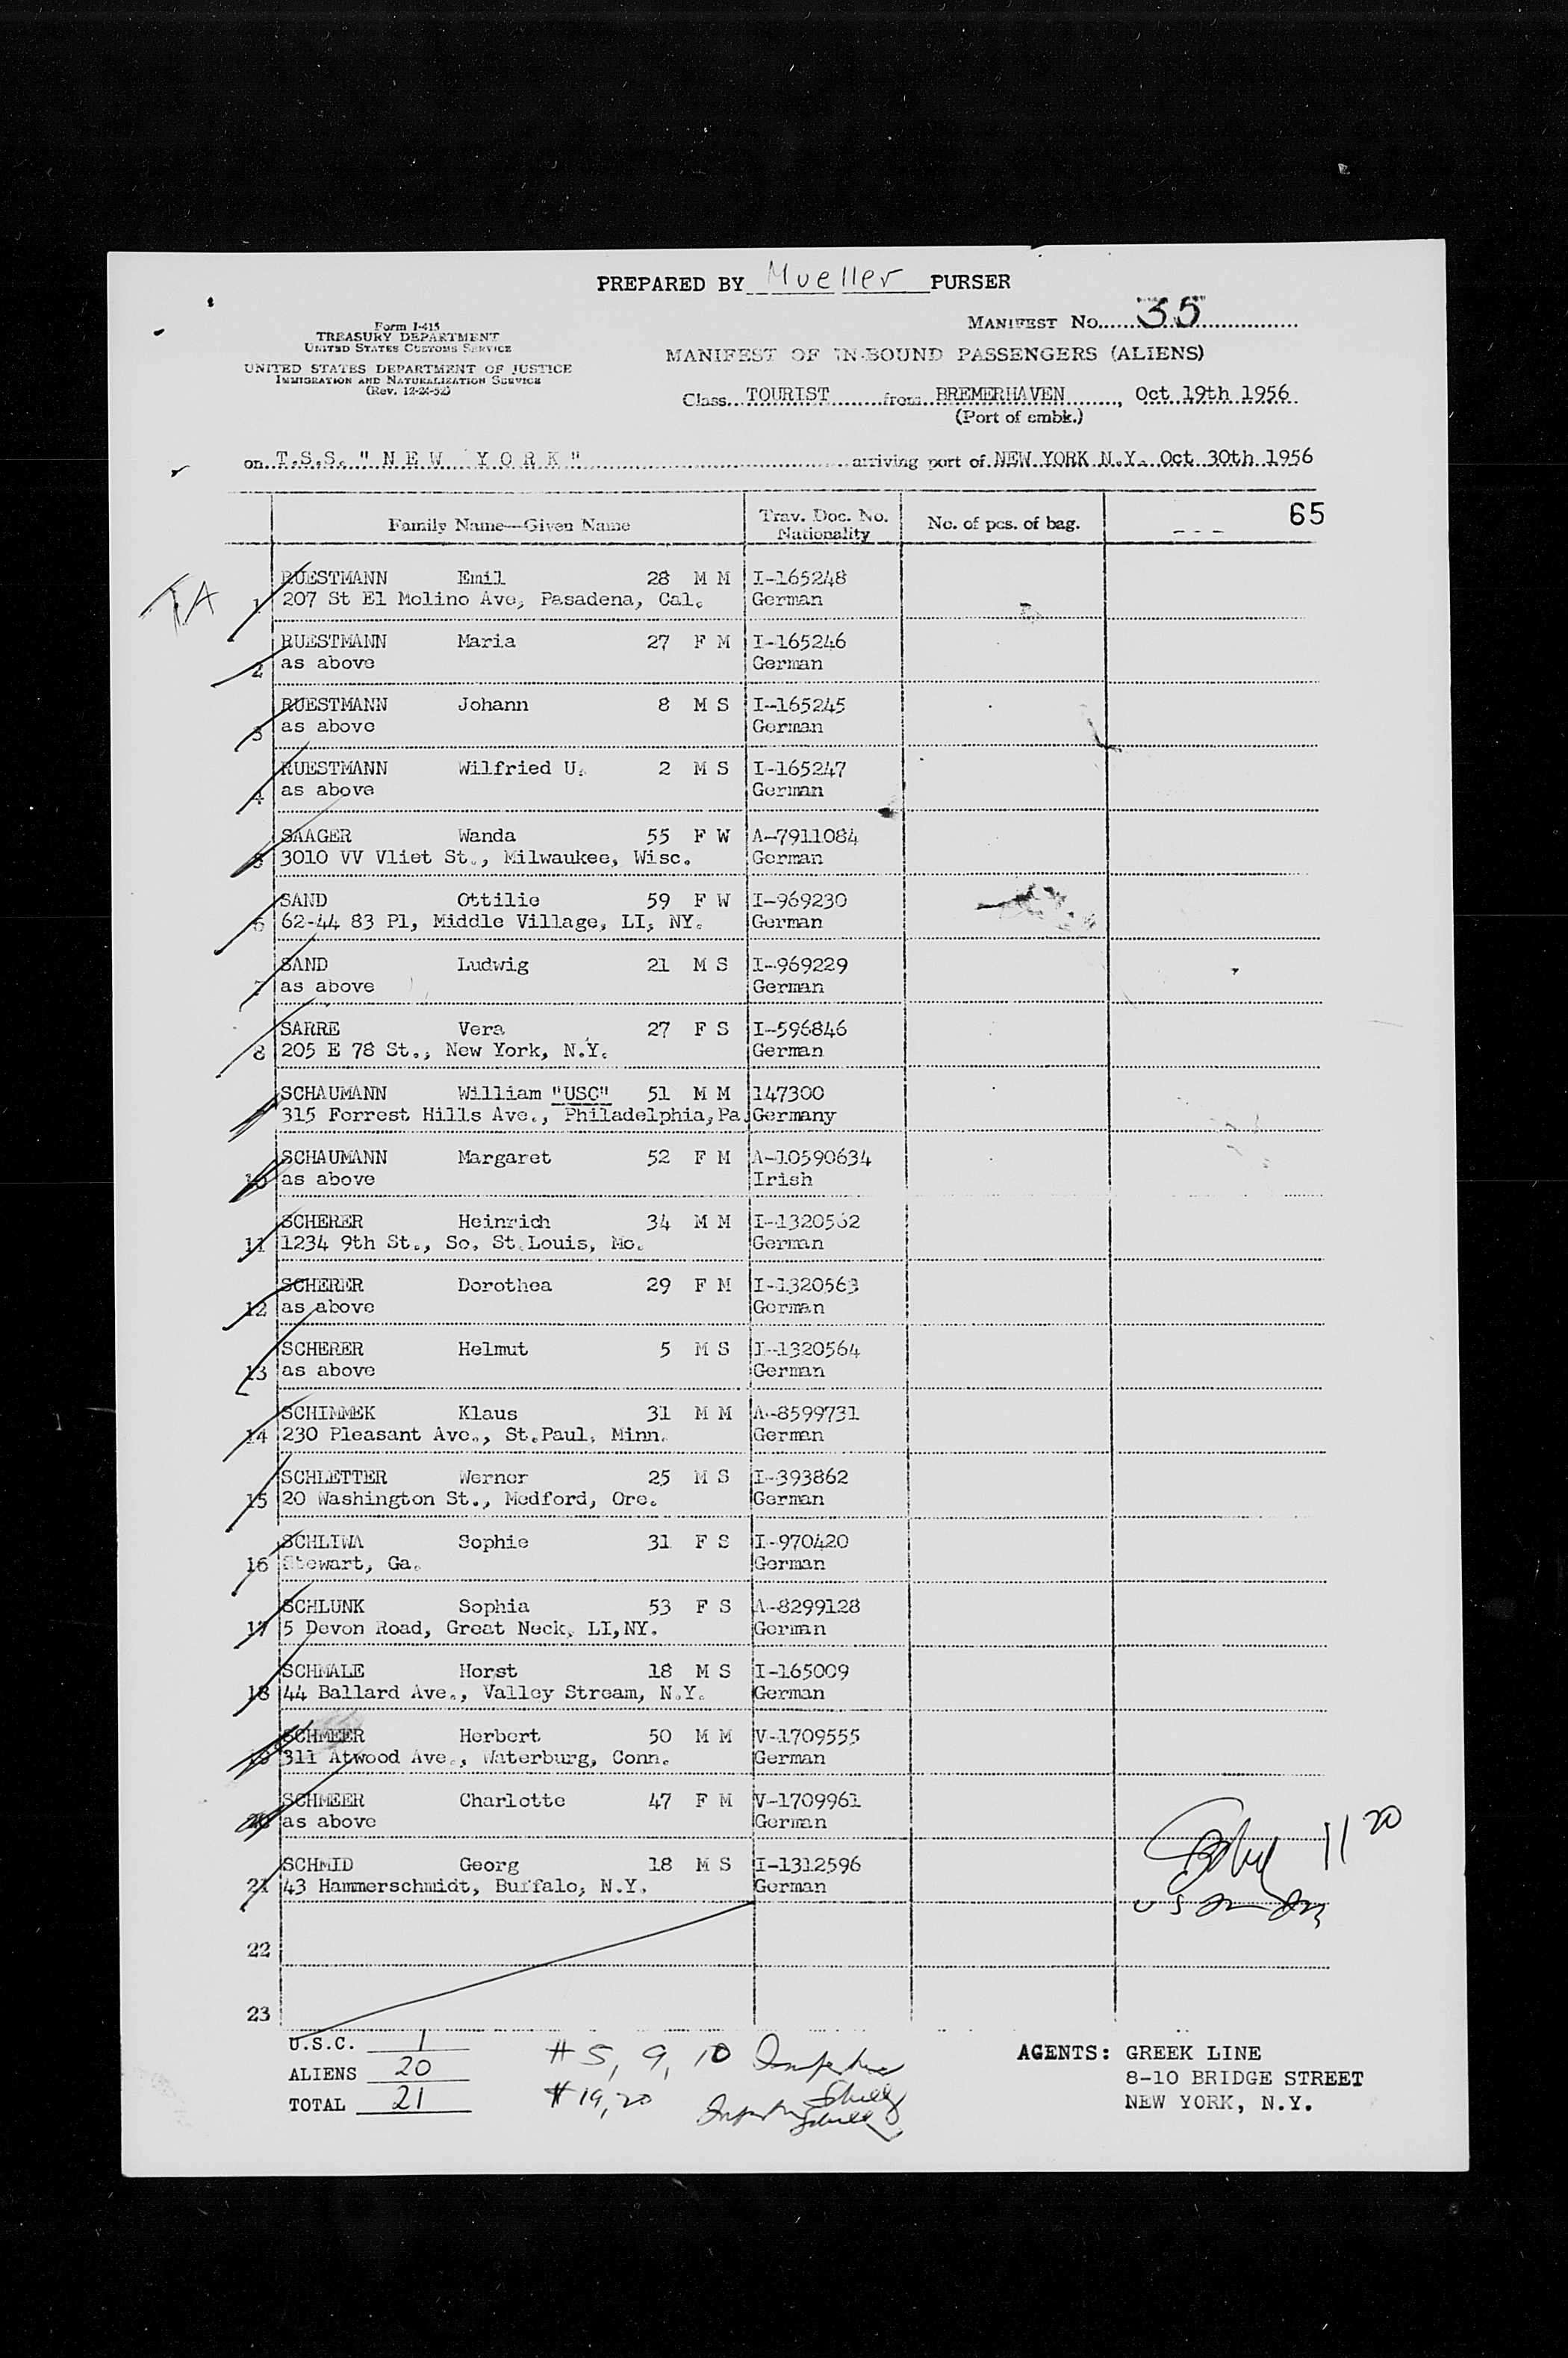 PREPARED BY Mueller PURSER
Form I-415
TREASURY DEPARTMENT
UNITED STATES CUSTOMS SERVICE
UNITED STATES DEPARTMENT OF JUSTICE
IMMIGRATION AND NATURALIZATION SERVICE
(Rev. 12-24-52)
MANIFEST No. 35
MANIFEST OF IN-BOUND PASSENGERS (ALIENS)
Class TOURIST from BREMERHAVEN, Oct 19th 1956
(Port of embk.)
on T.S.S. "NEW YORK" arriving port of NEW YORK N.Y. Oct 30th 1956
Family Name—Given Name Trav. Doc. No. Nationality No. of pcs. of bag. --- 65
TA
1 RUESTMANN Emil 28 M M I-165248
207 St El Molino Ave, Pasadena, Cal. German
2 RUESTMANN Maria 27 F M I-165246
as above German
3 RUESTMANN Johann 8 M S I-165245
as above German
4 RUESTMANN Wilfried U. 2 M S I-165247
as above German
5 SAAGER Wanda 55 F W A-7911084
3010 VV Vliet St., Milwaukee, Wisc. German
6 SAND Ottilie 59 F W I-969230
62-44 83 Pl, Middle Village, LI, NY. German
7 SAND Ludwig 21 M S I-969229
as above German
8 SARRE Vera 27 F S I-596846
205 E 78 St., New York, N.Y. German
9 SCHAUMANN William "USC" 51 M M 147300
315 Forrest Hills Ave., Philadelphia, Pa. Germany
10 SCHAUMANN Margaret 52 F M A-10590634
as above Irish
11 SCHERER Heinrich 34 M M I-1320562
1234 9th St., So. St.Louis, Mo. German
12 SCHERER Dorothea 29 F M I-1320563
as above German
13 SCHERER Helmut 5 M S I-1320564
as above German
14 SCHIMMEK Klaus 31 M M A-8599731
230 Pleasant Ave., St.Paul, Minn. German
15 SCHLETTER Werner 25 M S I-393862
20 Washington St., Medford, Ore. German
16 SCHLIWA Sophie 31 F S I-970420
Stewart, Ga. German
17 SCHLUNK Sophia 53 F S A-8299128
5 Devon Road, Great Neck, LI,NY. German
18 SCHMALE Horst 18 M S I-165009
44 Ballard Ave., Valley Stream, N.Y. German
19 SCHMEER Herbert 50 M M V-1709555
311 Atwood Ave., Waterburg, Conn. German
20 SCHMEER Charlotte 47 F M V-1709961
as above German
21 SCHMID Georg 18 M S I-1312596
43 Hammerschmidt, Buffalo, N.Y. German
11 20
22
23
U.S.C. 1
ALIENS 20
TOTAL 21
# 5, 9, 10
# 19, 20
AGENTS: GREEK LINE
8-10 BRIDGE STREET
NEW YORK, N.Y.